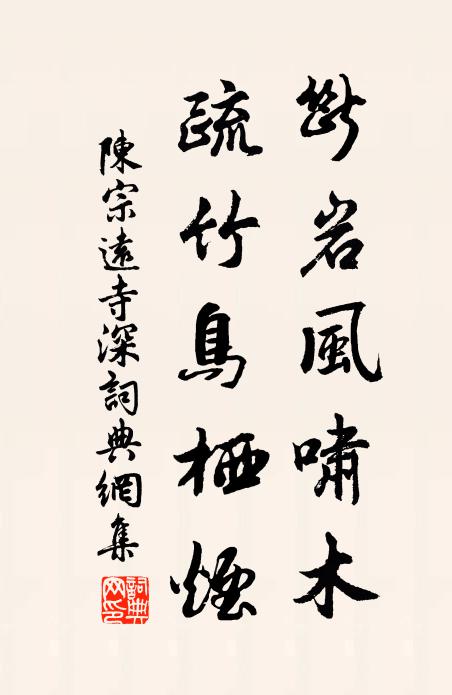 斷岩風嘯木
疏竹鳥栖煙
陳宗遠寺深詞典網集
詞典網印